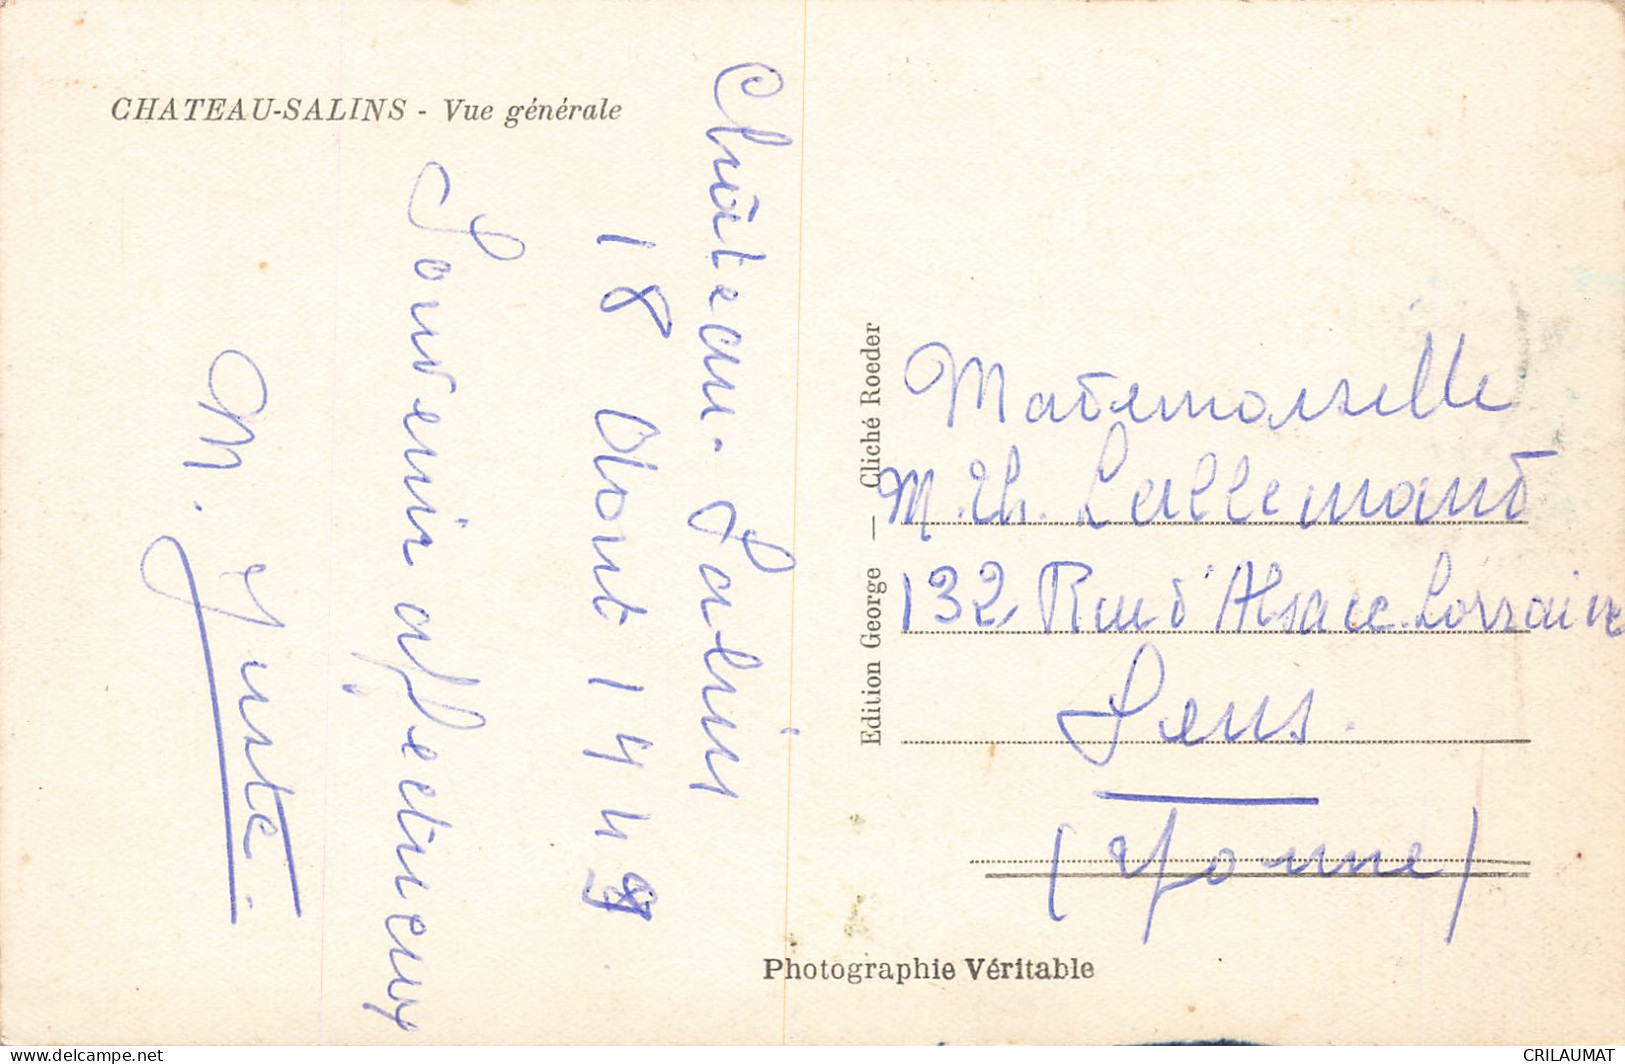 CHATEAU-SALINS - Vue générale
Château-Salins
18 Août 1949
Souvenir affectueux
M. Juste.
Edition George — Cliché Roeder
Mademoiselle
M. Th. Lallemand
132 Rue d'Alsace-Lorraine
Sens.
(Yonne)
Photographie Véritable
delcampe.net
CRILAUMAT